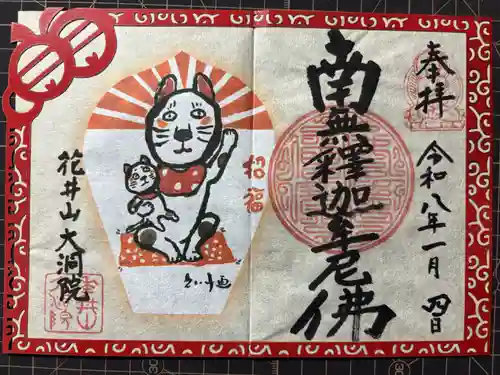 奉拝
令和八年一月四日
南無釋迦牟尼佛
招福
花井山 大洞院